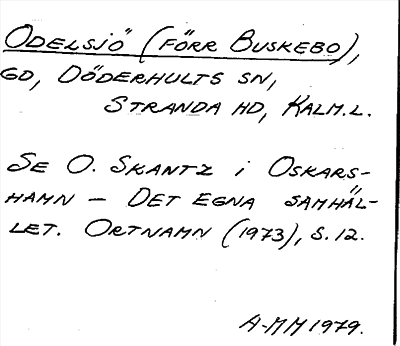 ODELSJÖ (FÖRR BUSKEBO),
GD, DÖDERHULTS SN,
STRANDA HD, KALM.L.
SE O. SKANTZ i OSKARS-
HAMN – DET EGNA SAMHÄL-
LET. ORTNAMN (1973), S. 12.
A-MM 1979.